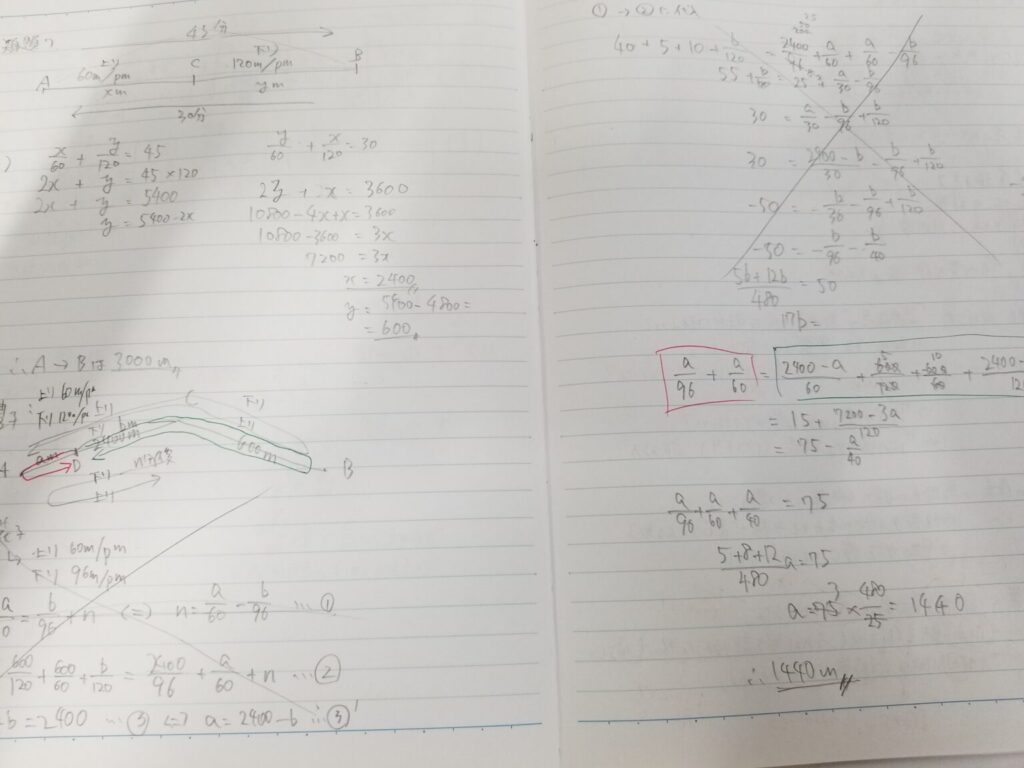 45分
A 上り 60m/pm xm C 下り 120m/pm ym B
30分
x/60 + y/120 = 45
2x + y = 45×120
2x + y = 5400
y = 5400-2x
y/60 + x/120 = 30
2y + x = 3600
10800-4x+x=3600
10800-3600 = 3x
7200 = 3x
x = 2400
y = 5400-4800=
= 600
∴ A→Bは3000m
上り 60m/pm
下り 120m/pm
C
上り
下り
下り bm
2400m
下り
上り
600m
am
D
B
下り
上り
上り 60m/pm
下り 96m/pm
b/96 + n ⇔ n = a/60 - b/96 … ①
600/120 + 600/60 + b/120 = 2400/96 + a/60 + n … ②
b = 2400 … ③ ⇔ a = 2400-b … ③'
40 + 5 + 10 + b/120 = 2400/96 + a/60 + a/60 - b/96
30 = a/30 - b/96 + b/120
30 = 2400-b/30 - b/96 + b/120
-50 = -b/30 - b/96 + b/120
-50 = -b/96 - b/40
5b+12b/480 = 50
17b=
a/96 + a/60 = 2400-a/60 + 600/120 + 600/60 + 2400-
= 15 + 7200-3a/120
= 75 - a/40
a/96 + a/60 + a/40 = 75
5+8+12/480 a = 75
a = 75 × 480/25 = 1440
∴ 1440m